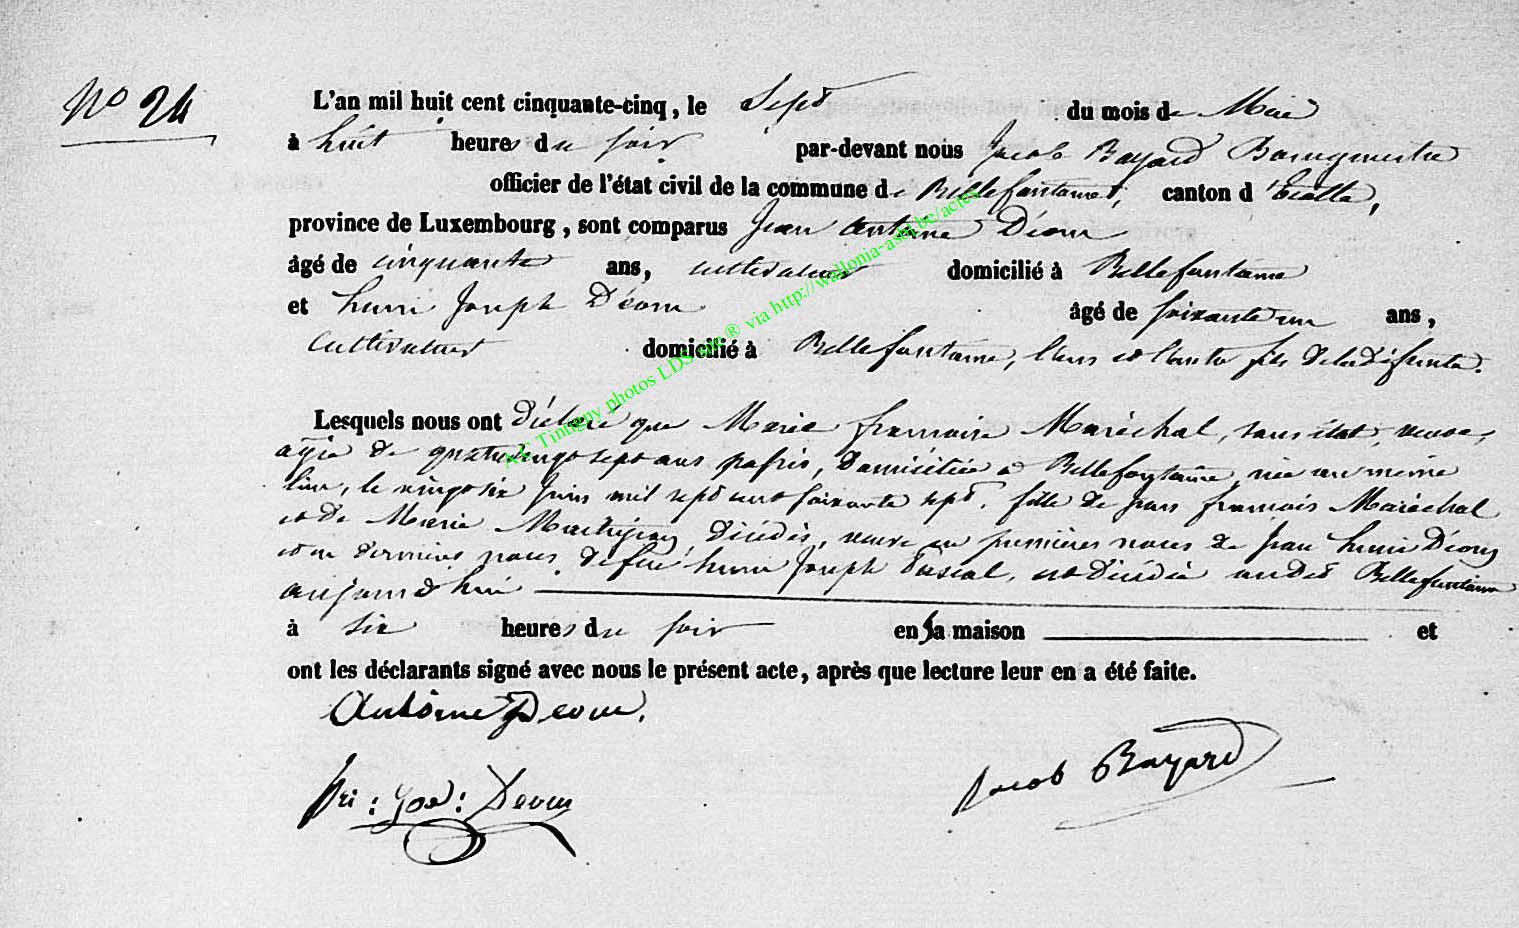 N° 24
L'an mil huit cent cinquante-cinq, le Sept du mois de Mai
à huit heures du soir par-devant nous Jacob Bayard Bourgmestre
officier de l'état civil de la commune de Bellefontaine, canton d'Etalle,
province de Luxembourg, sont comparus Jean Antoine Déom
âgé de cinquante ans, cultivateur domicilié à Bellefontaine
et henri Joseph Déom âgé de soixante un ans,
cultivateur domicilié à Bellefontaine, l'un et l'autre fils de la Défunte.
Lesquels nous ont déclaré que Marie françoise Maréchal, sans état, veuve,
agée de quatrevingt sept ans passés, domiciliée à Bellefontaine, née au même
lieu, le vingt six Juin mil sept cent soixante sept, fille de Jean françois Maréchal
et de Marie décédés, veuve en premières noces de Jean henri Déom
et en dernières noces de feu henri Joseph Pascal, est décédée audit Bellefontaine
aujourd'hui
à six heures du soir en sa maison et
ont les déclarants signé avec nous le présent acte, après que lecture leur en a été faite.
Antoine Deom.
hri : Jos : Deom
Jacob Bayard
AE Tintigny photos LDS via http://wallonia-asbl.be/actes